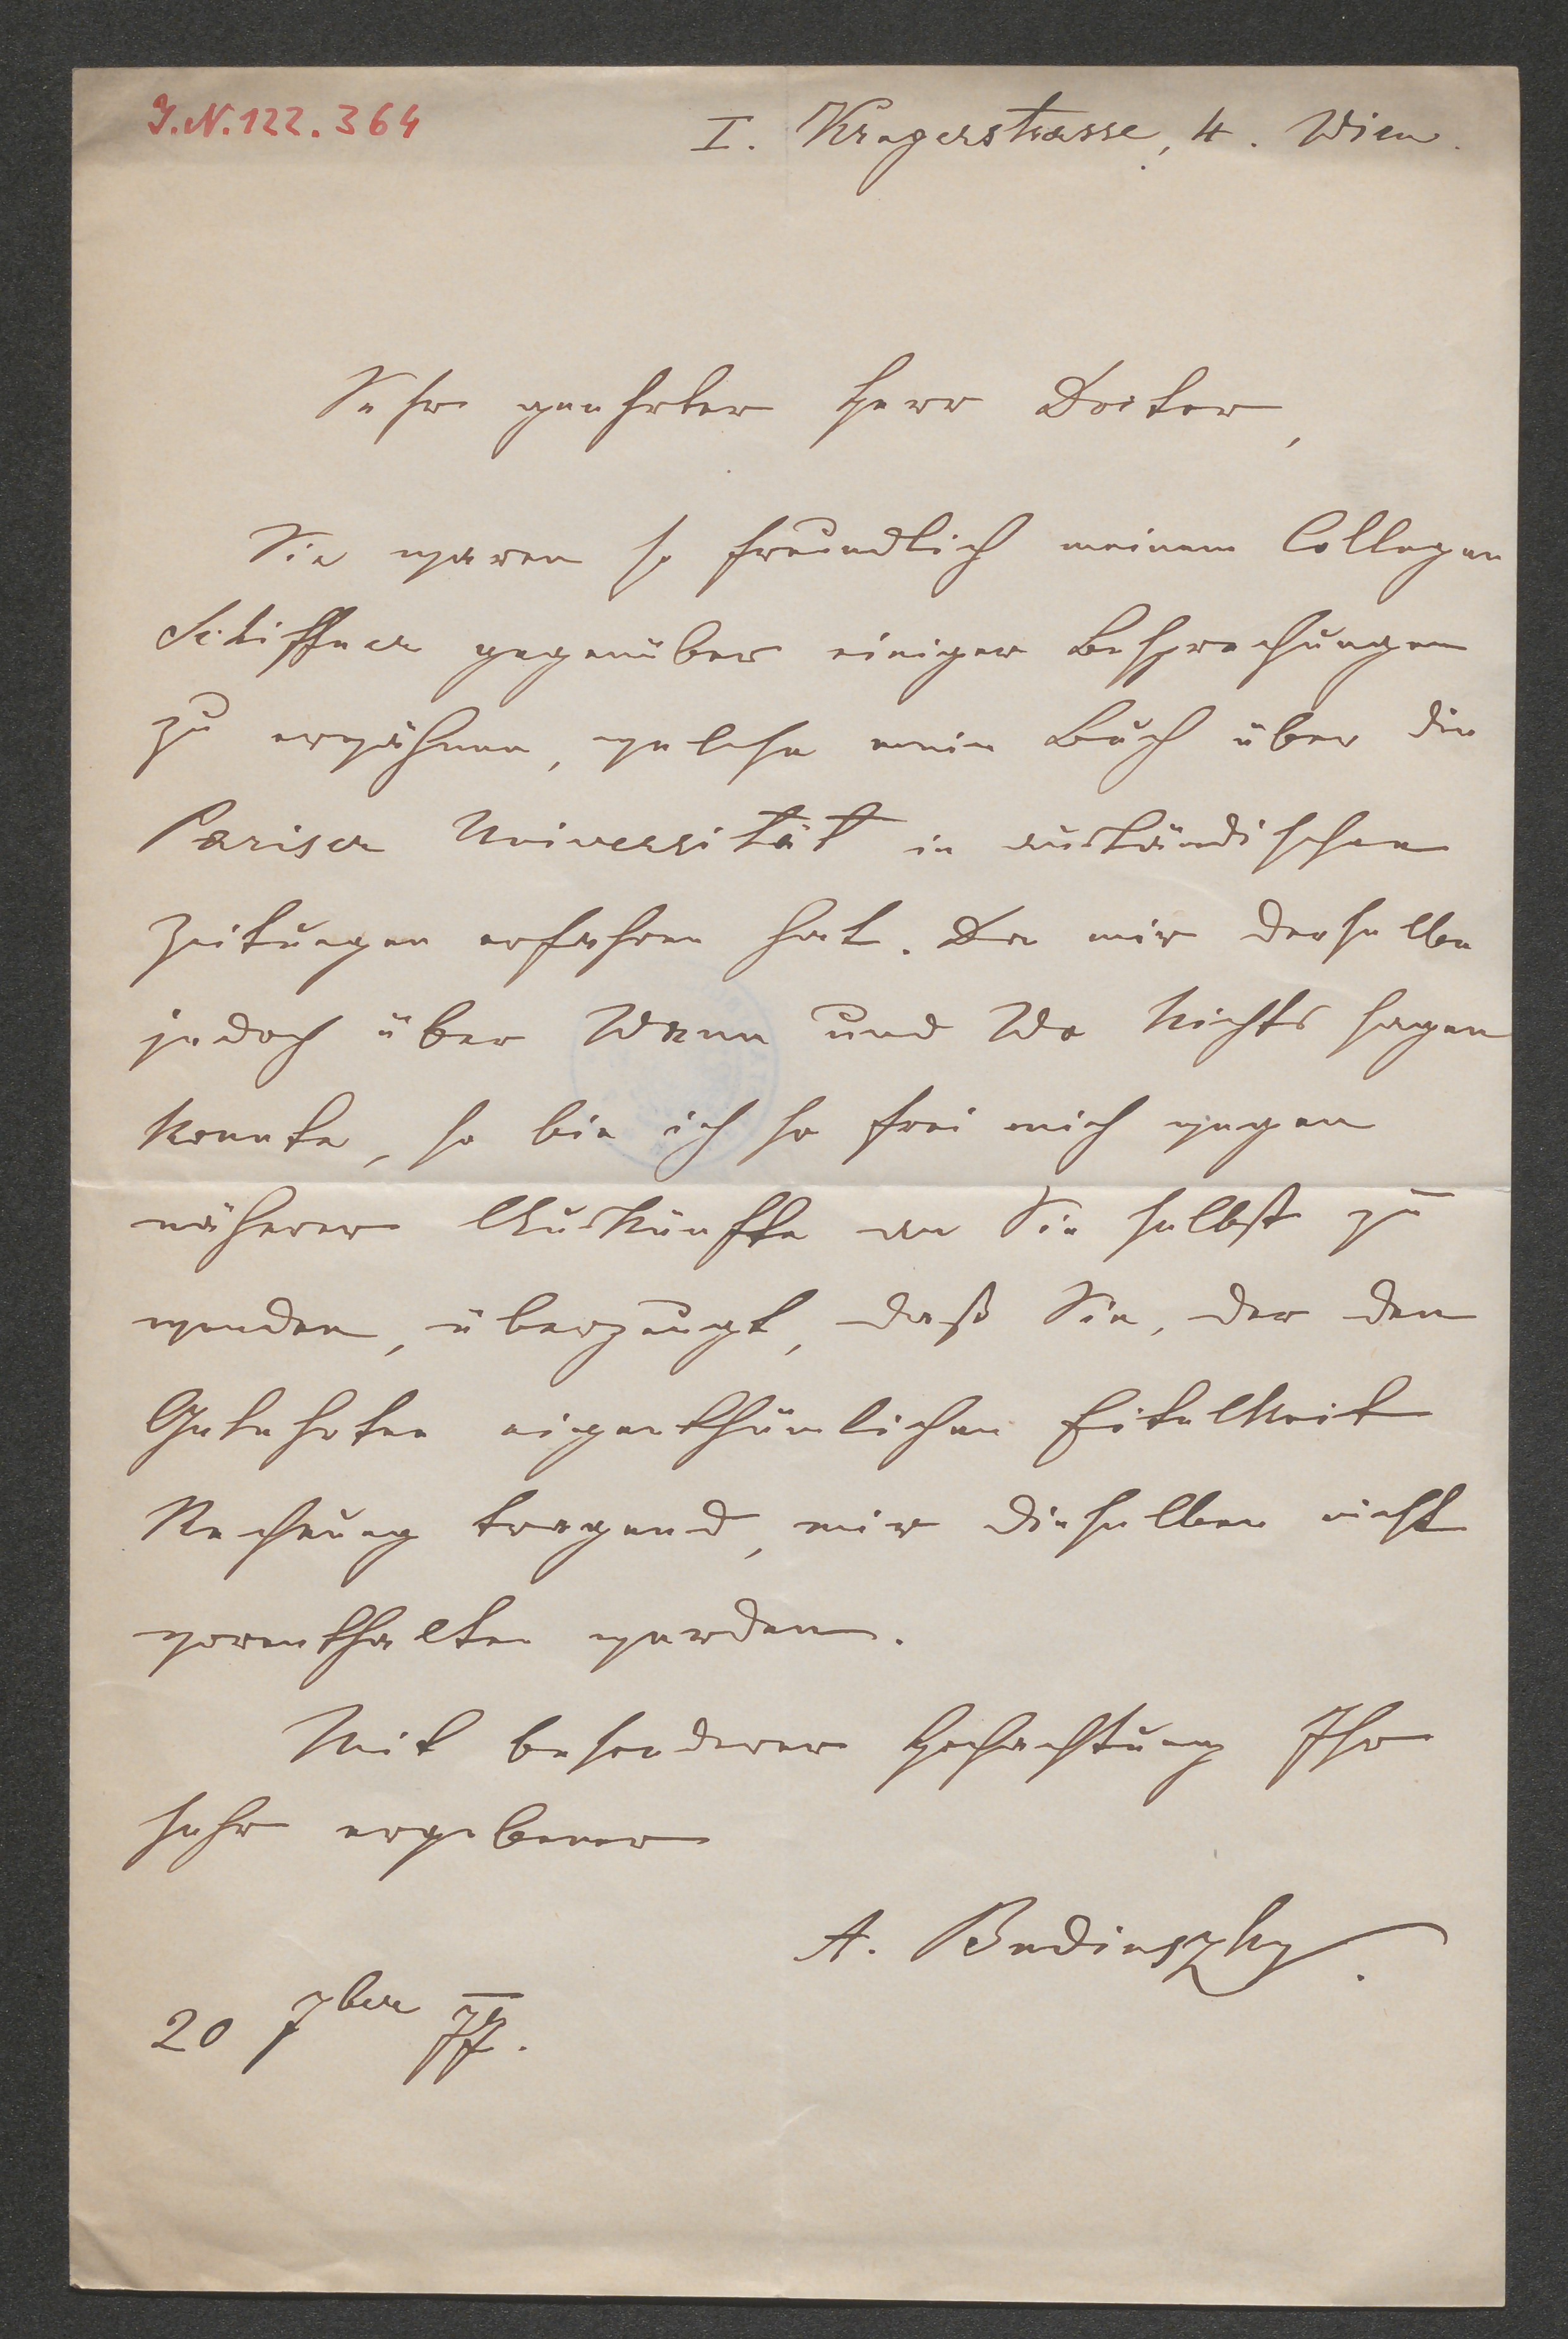 I.N.122.364
I. Krugerstrasse, 4. Wien.
Sehr geehrter Herr Doctor,
Sie waren so freundlich meinem Collegen
Schiffner gegenüber einiger Besprechungen
zu erwähnen, welche mein Buch über die
Pariser Universität in ausländischen
Zeitungen erfahren hat. Da mir derselbe
jedoch über Wann und Wo Nichts sagen
konnte, so bin ich so frei mich wegen
näherer Auskünfte an Sie selbst zu
wenden, überzeugt, daß Sie, der den
Gelehrten eigenthümlichen Eitelkeit
Rechnung tragend, mir dieselben nicht
vorenthalten werden.
Mit besonderer Hochachtung Ihr
sehr ergebener
A. Budinszky.
20 7ber 77.